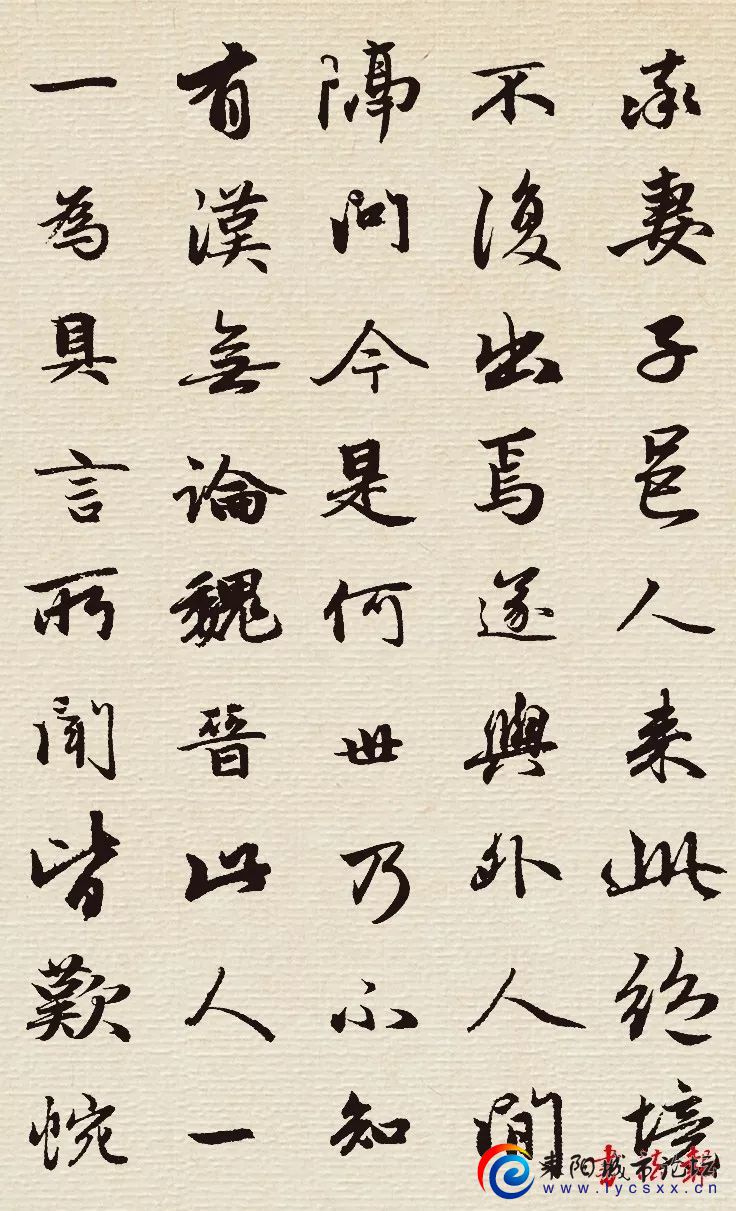 率妻子邑人来此絶境
不復出焉遂與外人間
隔問今是何世乃不知
有漢無論魏晉此人一
一為具言所聞皆歎惋
耒阳城市论坛
www.lycsxx.cn